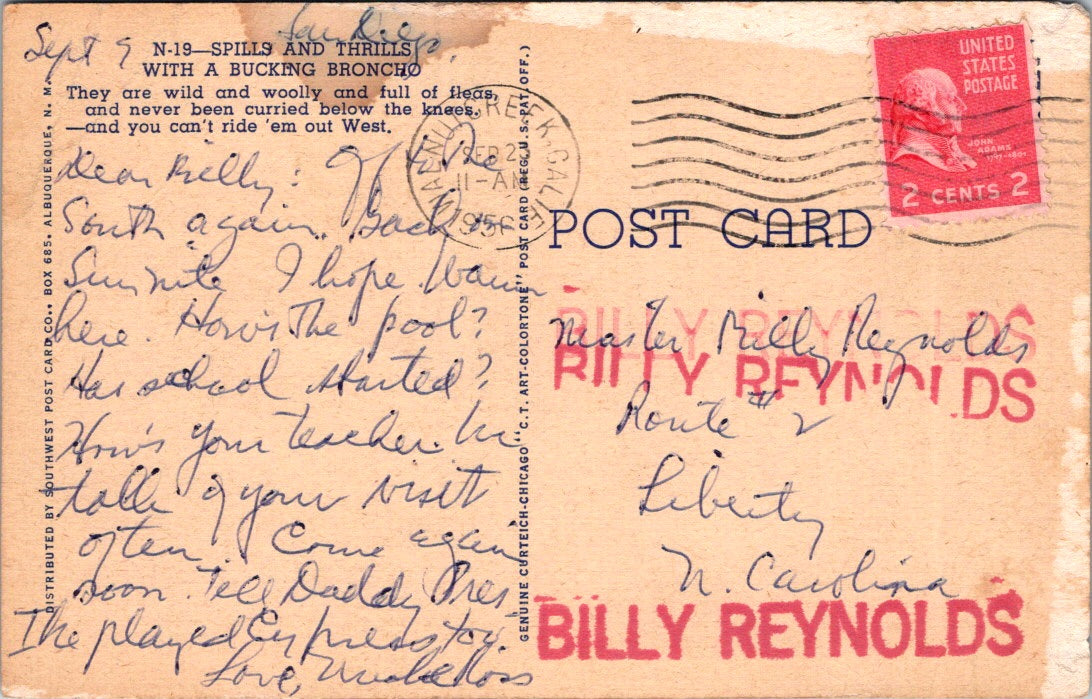 Sept 9 San Diego
N-19—SPILLS AND THRILLS
WITH A BUCKING BRONCHO
They are wild and woolly and full of fleas,
and never been curried below the knees.
—and you can't ride 'em out West.
Dear Billy: Off to the
South again. Back
Sun nite I hope. Warm
here. How's the pool?
Has school started?
How's your teacher. We
talk of your visit
often. Come again
soon. Tell Daddy Pres.
Ike played Cypress too.
Love, Uncle Ross
DISTRIBUTED BY SOUTHWEST POST CARD CO., BOX 685, ALBUQUERQUE, N. M.
GENUINE CURTEICH-CHICAGO "C.T. ART-COLORTONE" POST CARD (REG. U.S. PAT. OFF.)
WALNUT CREEK, CALIF.
SEP 2
11-AM
1956
UNITED
STATES
POSTAGE
JOHN
ADAMS
1797-1801
2 CENTS 2
POST CARD
BILLY REYNOLDS
Master Billy Reynolds
BILLY REYNOLDS
Route # 2
Liberty
N. Carolina
BILLY REYNOLDS